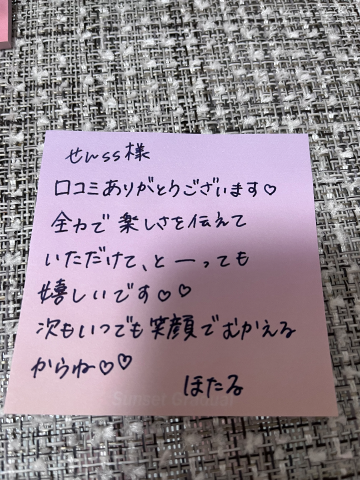 せんss様
口コミありがとうございます♡
全力で楽しさを伝えて
いただけて、とーっても
嬉しいです♡♡
次もいつでも笑顔でむかえる
からね♡♡
ほたる